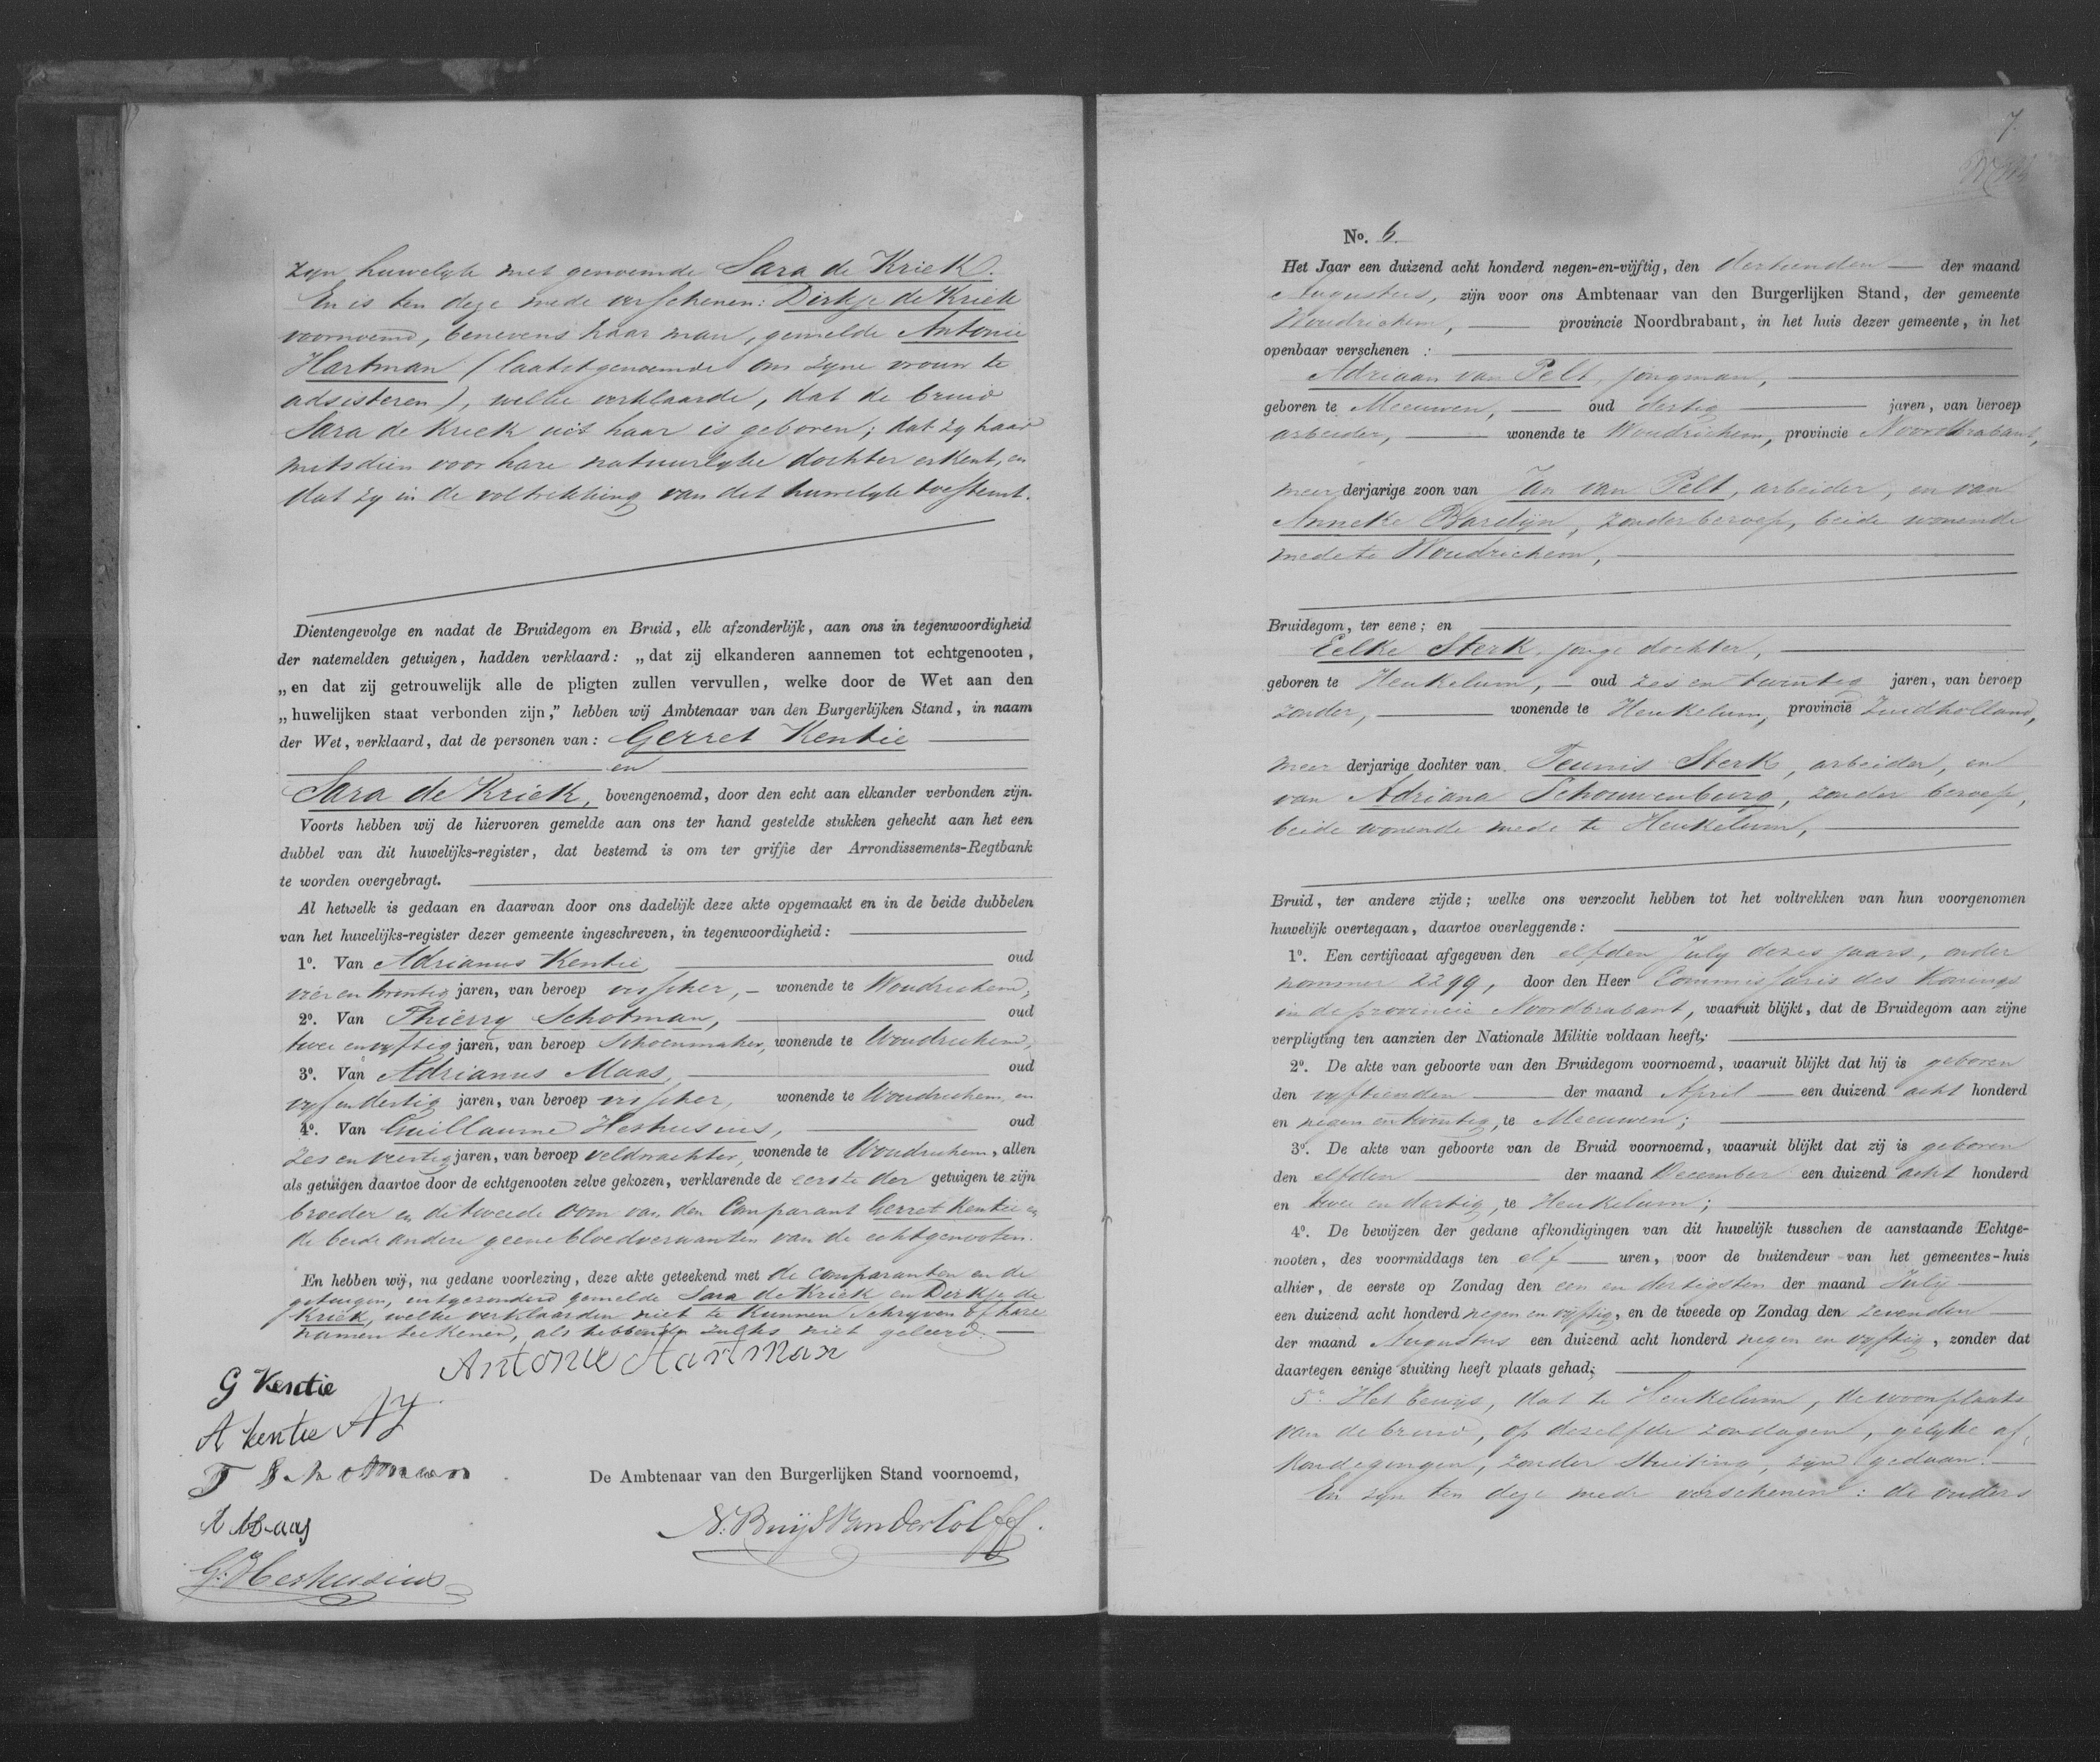 zyn huwelyk met genoemde Sara de Kriek.
En is ten deze mede verschenen: Dirkje de Kriek
voornoemd, benevens haar man, gemelde Antonie
Hartman (laatstgenoemde om zyne vrouw te
adsisteren), welke verklaarde, dat de bruid
Sara de Kriek uit haar is geboren; dat zy haar
mitsdien voor hare natuurlyke dochter erkent, en
dat zy in de voltrekking van het huwelyk toestemt.
Dientengevolge en nadat de Bruidegom en Bruid, elk afzonderlijk, aan ons in tegenwoordigheid
der natemelden getuigen, hadden verklaard: „dat zij elkanderen aannemen tot echtgenooten,
„en dat zij getrouwelijk alle de pligten zullen vervullen, welke door de Wet aan den
„huwelijken staat verbonden zijn,” hebben wij Ambtenaar van den Burgerlijken Stand, in naam
der Wet, verklaard, dat de personen van: Gerret Kentie
en
Sara de Kriek, bovengenoemd, door den echt aan elkander verbonden zijn.
Voorts hebben wij de hiervoren gemelde aan ons ter hand gestelde stukken gehecht aan het een
dubbel van dit huwelijks-register, dat bestemd is om ter griffie der Arrondissements-Regtbank
te worden overgebragt.
Al hetwelk is gedaan en daarvan door ons dadelijk deze akte opgemaakt en in de beide dubbelen
van het huwelijks-register dezer gemeente ingeschreven, in tegenwoordigheid:
1o. Van Adrianus Kentie, oud
vier en twintig jaren, van beroep visscher, wonende te Woudrichem,
2o. Van Thierry Schotman, oud
twee en vyftig jaren, van beroep Schoenmaker, wonende te Woudrichem,
3o. Van Adrianus Maas, oud
vyf en dertig jaren, van beroep visscher, wonende te Woudrichem, en
4o. Van Guillaume Heshusius, oud
zes en veertig jaren, van beroep veldwachter, wonende te Woudrichem, allen
als getuigen daartoe door de echtgenooten zelve gekozen, verklarende de eerste der getuigen te zijn
broeder en de tweede oom van den Comparant Gerret Kentie en
de beide andere geene bloedverwanten van de echtgenooten.
En hebben wij, na gedane voorlezing, deze akte geteekend met de comparanten en de
getuigen, uitgezonderd gemelde Sara de Kriek en Dirkje de
Kriek, welke verklaarden niet te kunnen schryven of hare
namen teekenen, als hebbende zulks niet geleerd.
Antonie Hartman
G Kentie
A Kentie AZ
T Schotman
A Maas
G. Heshusius
De Ambtenaar van den Burgerlijken Stand voornoemd,
N. Buijs van der Colff.
7.
No. 6.
Het Jaar een duizend acht honderd negen-en-vijftig, den dertienden der maand
Augustus, zijn voor ons Ambtenaar van den Burgerlijken Stand, der gemeente
Woudrichem, provincie Noordbrabant, in het huis dezer gemeente, in het
openbaar verschenen:
Adriaan van Pelt, jongman,
geboren te Meeuwen, oud dertig jaren, van beroep
arbeider, wonende te Woudrichem, provincie Noordbrabant,
meerderjarige zoon van Jan van Pelt, arbeider, en van
Anneke Bardijn, zonder beroep, beide wonende
mede te Woudrichem,
Bruidegom, ter eene; en
Eelke Sterk, jonge dochter,
geboren te Heukelum, oud zes en twintig jaren, van beroep
zonder, wonende te Heukelum, provincie Zuidholland,
meerderjarige dochter van Teunis Sterk, arbeider, en
van Adriana Schouwenburg, zonder beroep,
beide wonende mede te Heukelum,
Bruid, ter andere zijde; welke ons verzocht hebben tot het voltrekken van hun voorgenomen
huwelijk overtegaan, daartoe overleggende:
1o. Een certificaat afgegeven den elfden July dezes jaars, onder
nommer 2299, door den Heer Commissaris des Konings
in de provincie Noordbrabant, waaruit blijkt, dat de Bruidegom aan zijne
verpligting ten aanzien der Nationale Militie voldaan heeft;
2o. De akte van geboorte van den Bruidegom voornoemd, waaruit blijkt dat hij is geboren
den vyftienden der maand April een duizend acht honderd
en negen en twintig, te Meeuwen;
3o. De akte van geboorte van de Bruid voornoemd, waaruit blijkt dat zij is geboren
den elfden der maand December een duizend acht honderd
en twee en dertig, te Heukelum;
4o. De bewijzen der gedane afkondigingen van dit huwelijk tusschen de aanstaande Echtge-
nooten, des voormiddags ten elf uren, voor de buitendeur van het gemeentes-huis
alhier, de eerste op Zondag den een en dertigsten der maand July
een duizend acht honderd negen en vyftig, en de tweede op Zondag den zevenden
der maand Augustus een duizend acht honderd negen en vyftig, zonder dat
daartegen eenige stuiting heeft plaats gehad;
5o. Het bewys, dat te Heukelum, de woonplaats
van de bruid, op dezelfde zondagen, gelyke af-
kondigingen, zonder stuiting, zyn gedaan.
En zyn ten deze mede verschenen: de ouders